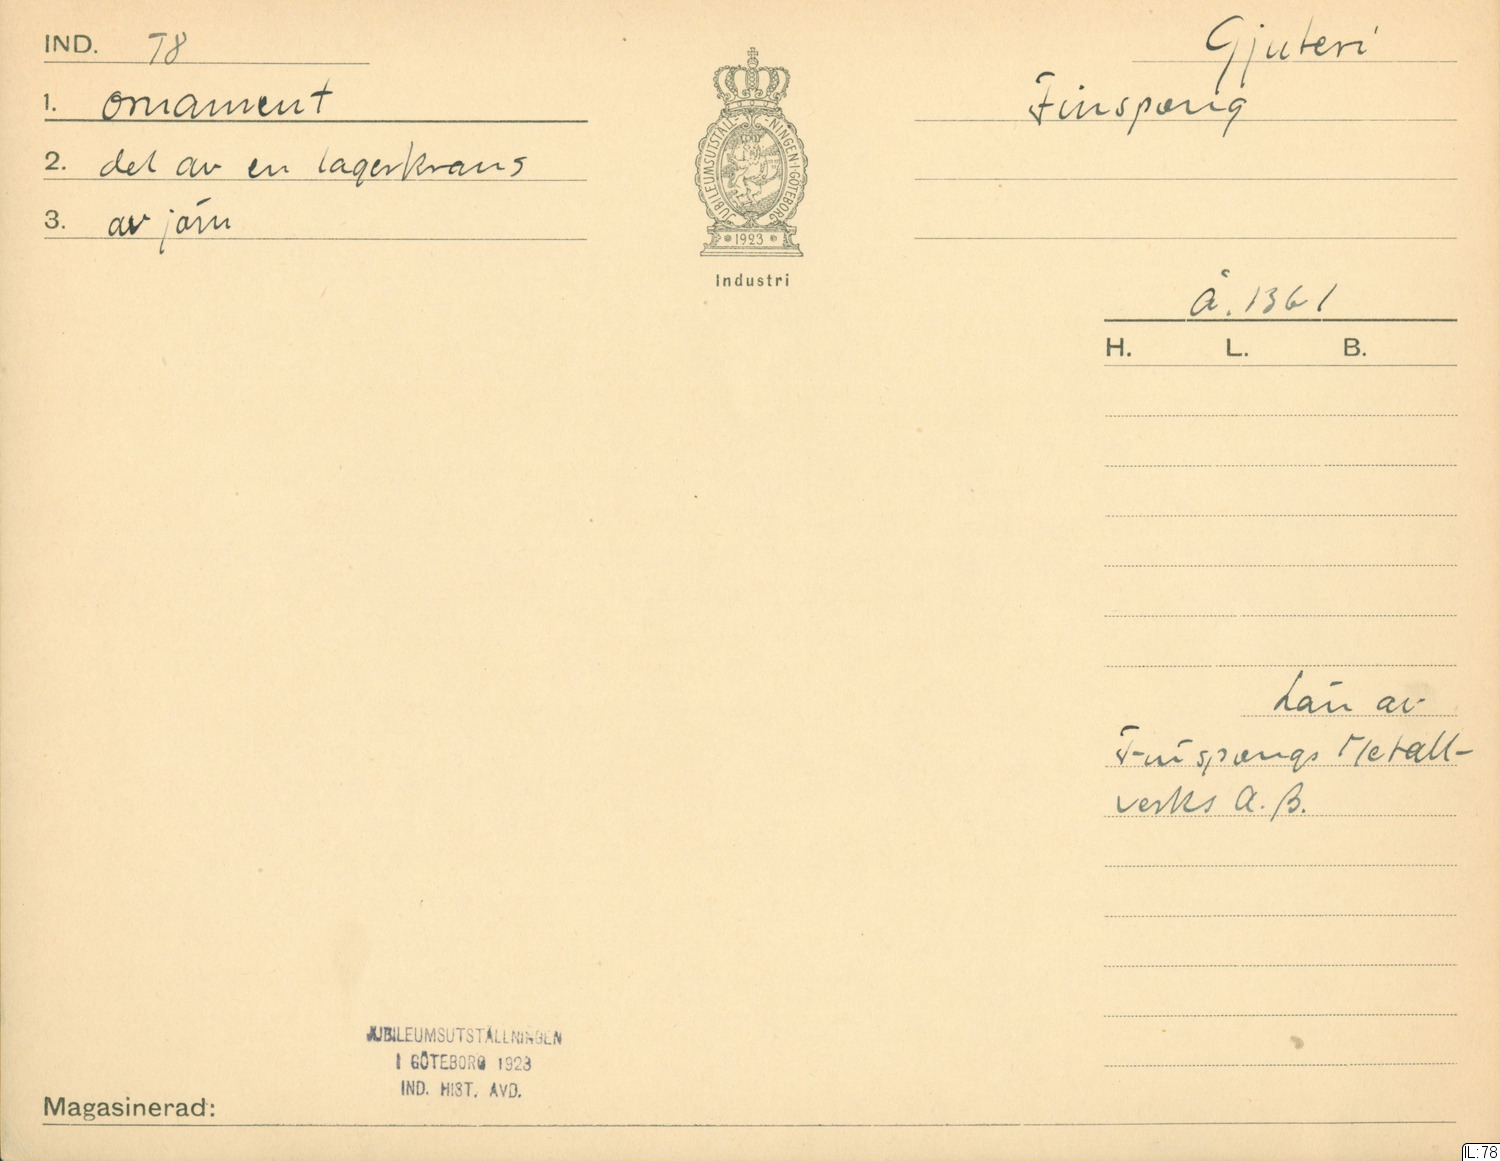 IND. 78
Gjuteri
1. ornament
Finspong
2. del av en lagerkrans
3. av järn
JUBILEUMSUTSTÄLLNINGEN I GÖTEBORG
1923
Industri
Å. 1361
H. L. B.
Lån av
Finspongs Metall-
verks A.B.
JUBILEUMSUTSTÄLLNINGEN
I GÖTEBORG 1923
IND. HIST. AVD.
Magasinerad:
IL:78